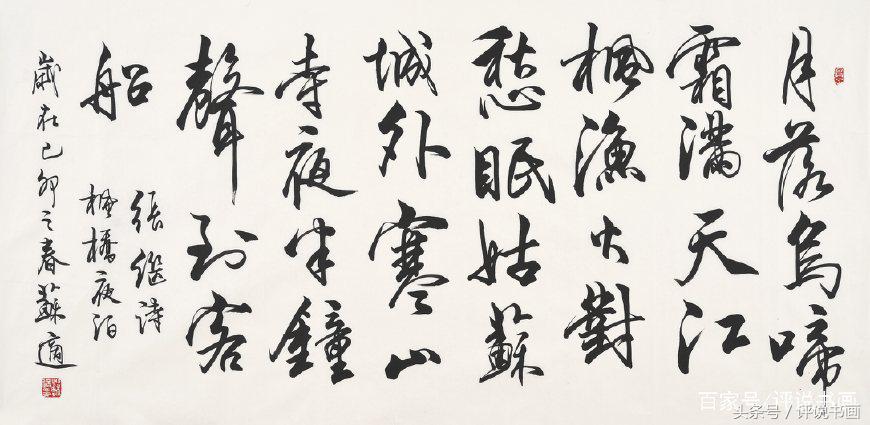 月落烏啼
霜滿天江
楓漁火對
愁眠姑蘇
城外寒山
寺夜半鐘
聲到客
船
張繼詩
楓橋夜泊
歲在己卯之春蘇適
百家号/评说书画
头条号 / 评说书画